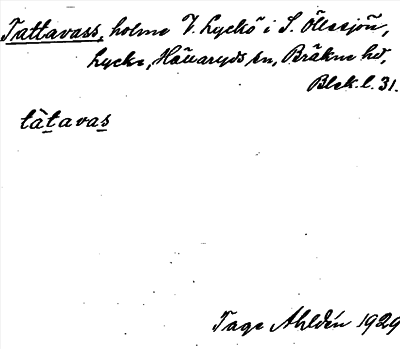 Tattavass, holme V. Lyckö i S. Öllesjön,
Lycke, Hällaryds sn, Bräkne hd,
Blek. l. 31.
tàtavas
Tage Ahldén 1929